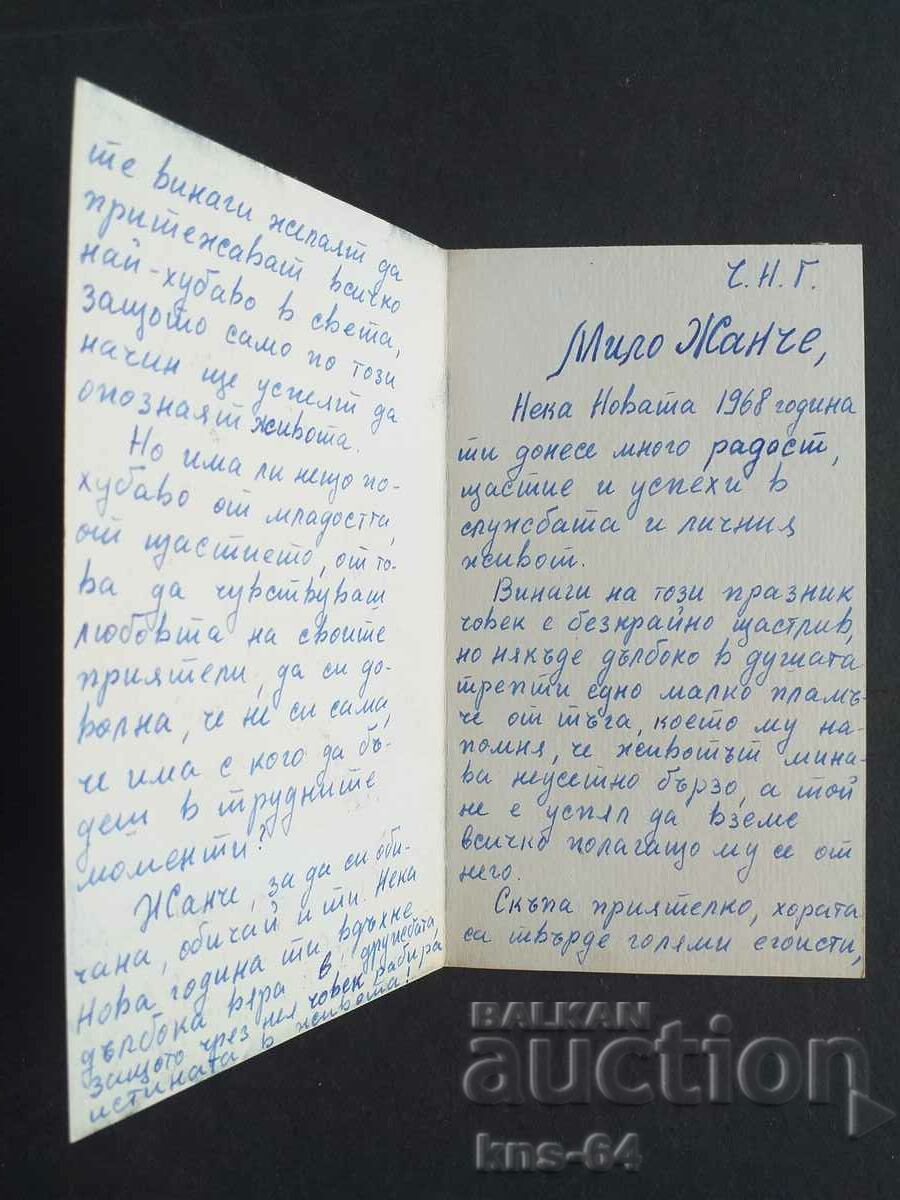 Ч.Н.Г.
Мило Жанче,
Нека Новата 1968 година
ти донесе много радост,
щастие и успехи в
службата и личния
живот.
Винаги на този празник
човек е безкрайно щастлив,
но някъде дълбоко в душата
трепти едно малко пламъ-
че от тъга, което му на-
помня, че животът мина-
ва неусетно бързо, а той
не е успял да вземе
всичко полагащо му се от
него.
Скъпа приятелко, хората
са твърде големи егоисти,
те винаги желаят да
притежават всичко
най-хубаво в света,
защото само по този
начин ще успеят да
опознаят живота.
Но има ли нещо по-
хубаво от младостта,
от щастието, от то-
ва да чувствуваш
любовта на своите
приятели, да си до-
волна, че не си сама,
че има с кого да бъ-
деш в трудните
моменти?
Жанче, за да си оби-
чана, обичай и ти. Нека
Нова година ти вдъхне
дълбока вяра в дружбата,
защото чрез нея човек разбира
истината в живота!
BALKAN
auction
kns-64